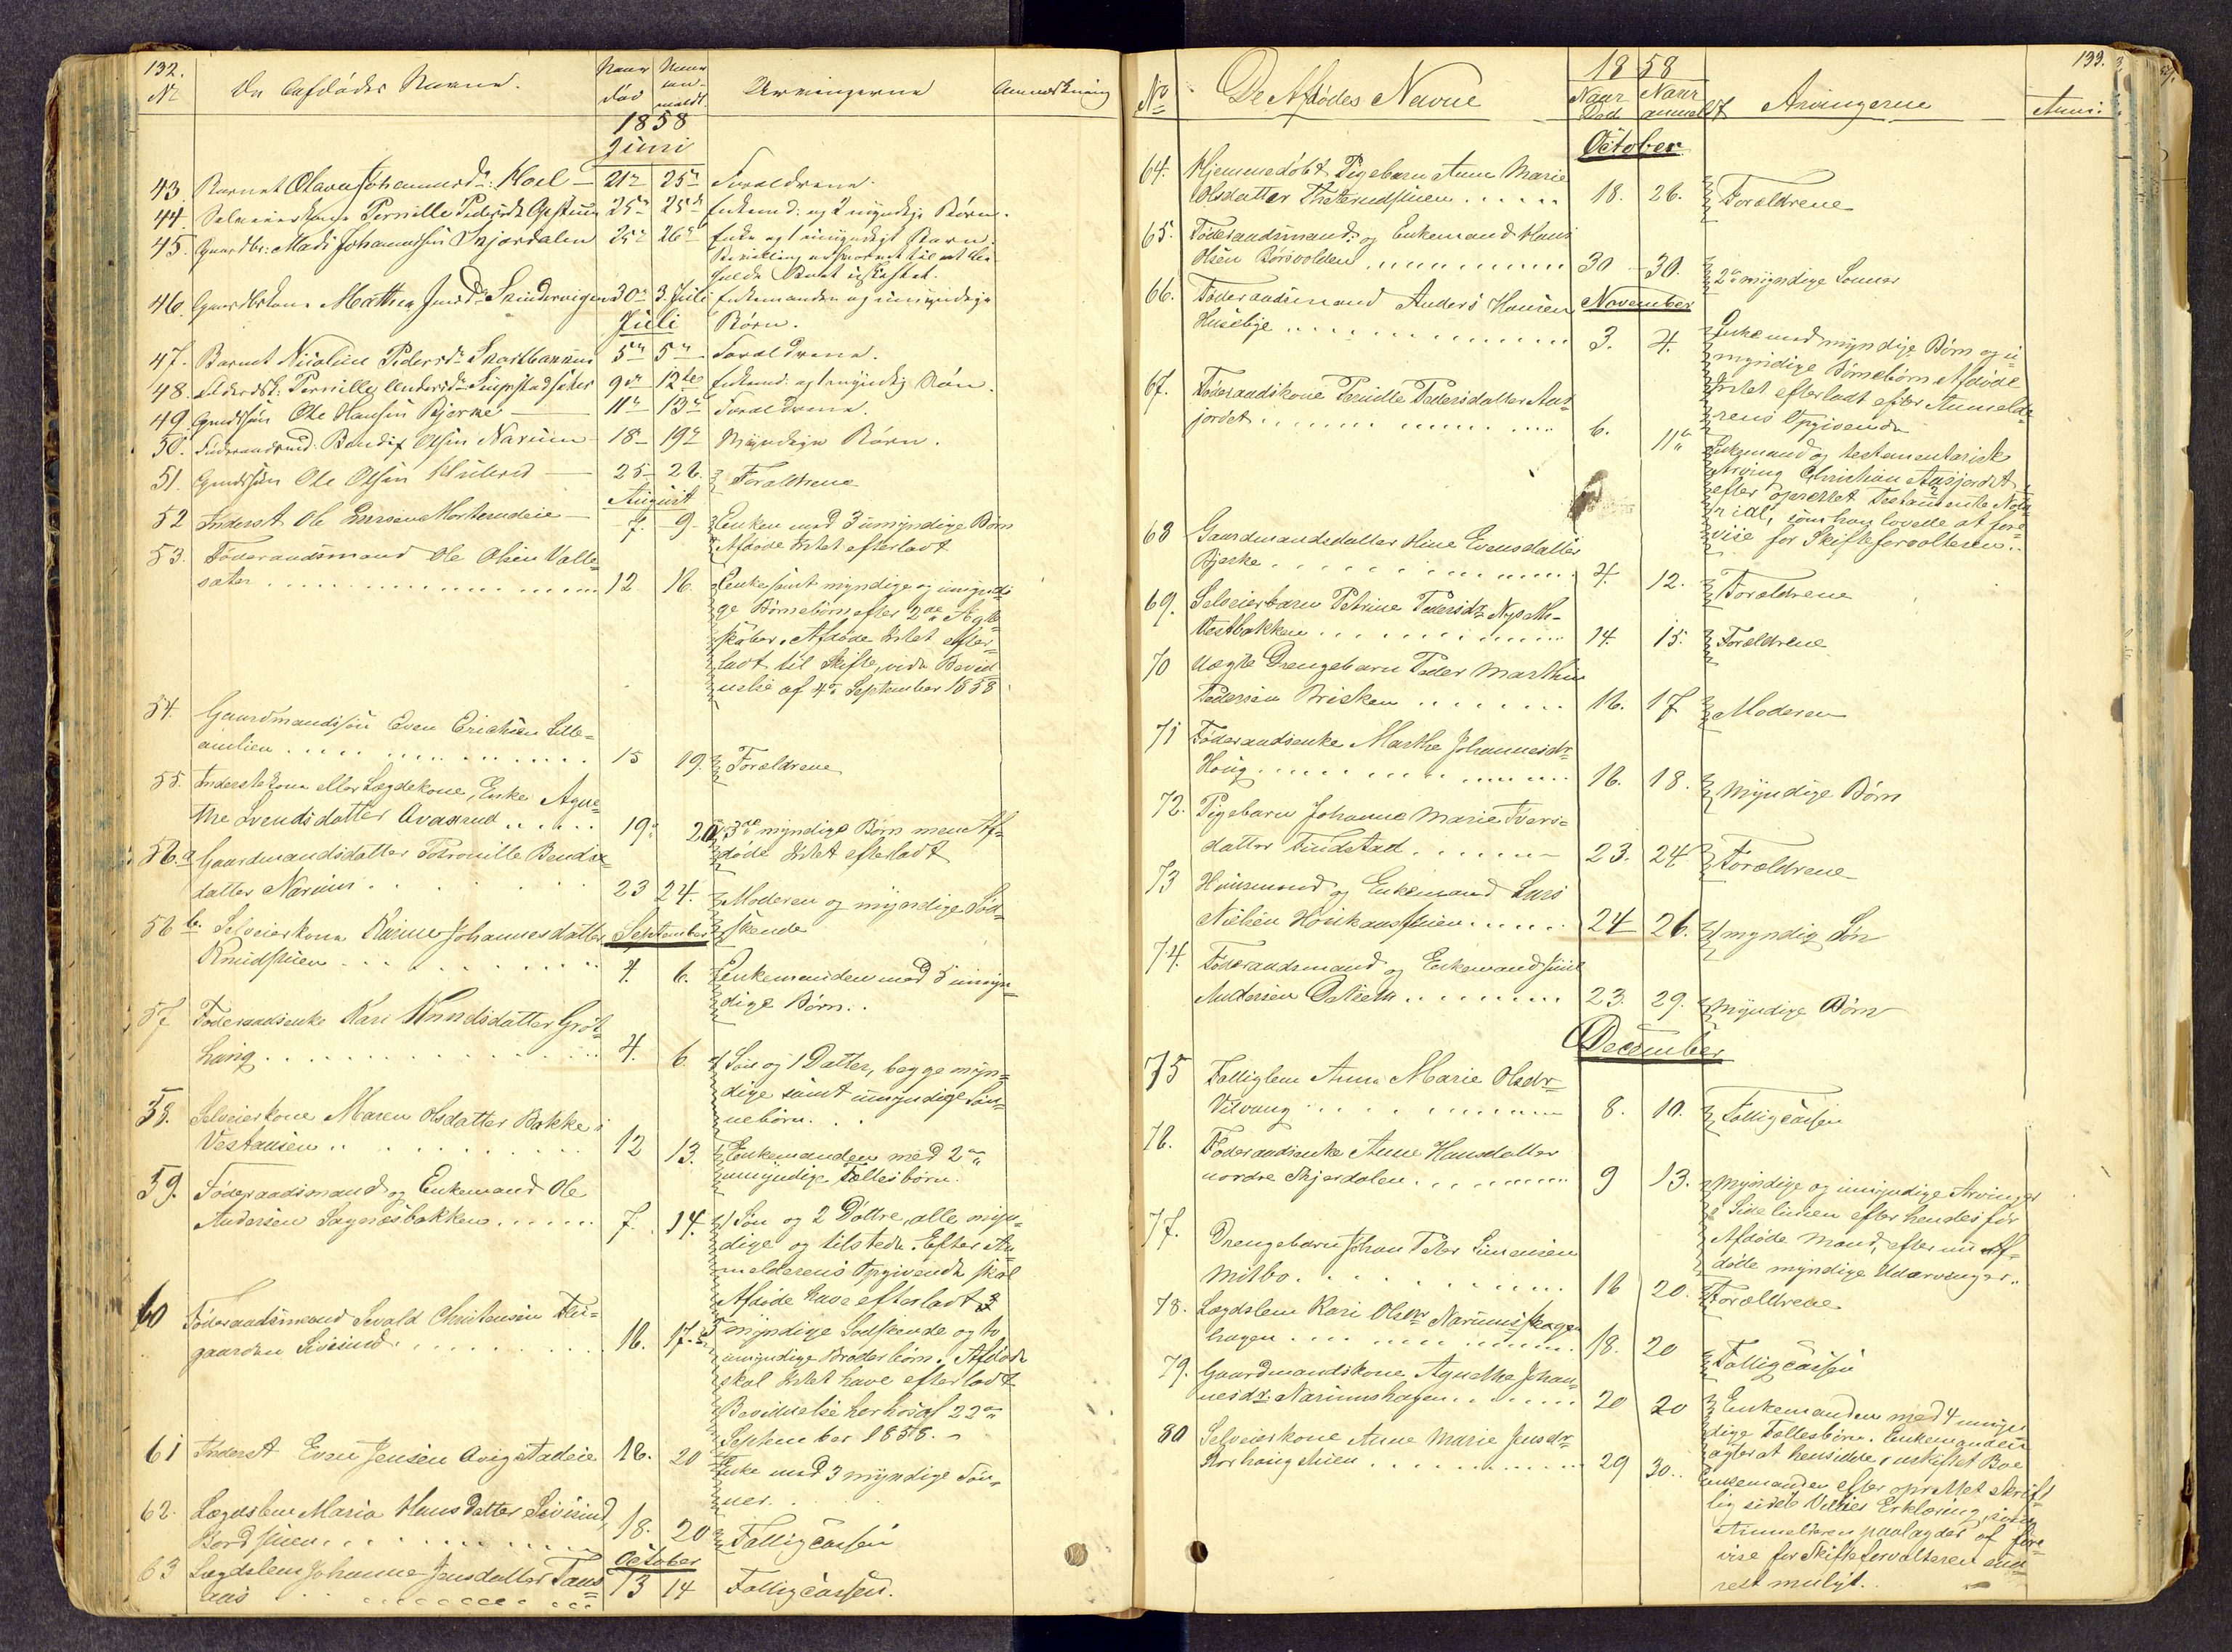 132.
No De Afdødes Navne. Naar død Naar anmeldt Arvingerne Anmærkning
1858
Juni
43. Barnet Olava Johannesdr: Hoel — 21de 25de Forældrene.
44. Pernille Pedersdr 25de 25de Enkemd: og 2 myndige Børn.
45. Gaardbr: Mads Johannessen Skjærdalen 25de 26de Enke og 1 umyndigt Barn.
Boet uskiftet.
46. Mathea Jensdr 30de 3 Juli Enkemanden og umyndige
Juli Børn.
47. Barnet Nicoline Pedersdr Snartbakken 5te 5te Forældrene.
48. Pernille Andersdr 9de 12te Enkemd: og 1 myndig Søn.
49. Gmdssøn Ole Hansen Bjerke — 11te 13de Forældrene.
50. Føderaadsmd. Bendix Olsen Narum 18 — 19de Myndige Børn.
51. Gmdssøn Ole Olsen — 25 — 26. Forældrene
August
52 Inderst Ole Larsen Mortensdeie — 7. — 9 — Enken med 3 umyndige Børn
Afdøde Intet efterladt
53. Føderaadsmand Ole Olsen Valle-
sæter 12 16. Enke samt myndige og umyndi-
ge Børnebørn efter 2de Ægte-
skaber. Afdøde Intet efter-
ladt til Skifte, vide Bevid-
nelse af 4de September 1858
54. Gaardmandssøn Even Erichsen Lille-
amlien 15 19. Forældrene
55. Inderstkone eller Lægdekone, Enke Agne-
the Svendsdatter 19. 20 3de myndige Børn men Af-
døde Intet efterladt
56.a Gaardmandsdatter Petronille Bendix-
datter Narum 23 24. Moderen og myndige Sød-
skende
56 b. Selveierkone Karine Johannesdatter September
Knudstuen 4. 6. Enkemanden med 5 umyn-
dige Børn..
57 Føderaadsenke Kari Knudsdatter Grøt-
haug 4. 6 1 Søn og 1 Datter, begge myn-
dige samt umyndige Søn-
nebørn.
58. Selveierkone Maren Olsdatter Bakke i
Vestaasen 12 13. Enkemanden med 2de
umyndige Fællesbørn.
59. Føderaadsmand og Enkemand Ole
Andersen Sagnæsbakken 7. 14. 1 Søn og 2 Døttre, alle myn-
dige og tilstede. Efter An-
melderens Opgivende skal
Afdøde have efterladt
60 Føderaadsmand Sevald Christensen
gaarden Sivesind 16. 17. 5 myndige Sødskende og to
umyndige Broderbørn. Afdøde
skal Intet have efterladt
Bevidnelse herhos af 22de
September 1858. —
61 Inderst Even Jensen Avigstadeie 16. 20 Enke med 3 myndige Søn-
ner.
62. Lægdslem Maria Hansdatter Sivesind,
Bordstuen 18. 20 Fattigcassen
October
63 Lægdslem Johanne Jensdatter Taus-
aas 13 14 Fattigcassen.
133.
No De Afdødes Navne 1858 Naar Død Naar anmeldt Arvingerne Anm:
October
64. Hjemmedøbt Pigebarn Anne Marie
Olsdatter Theterudstuen 18. 26. Forældrene
65. Føderaadsmand og Enkemand Hans
Olsen Børsvolden 30 — 30. 2de myndige Sønner
66. Føderaadsmand Anders Hansen November
Husebye 3. 4. Enke med myndige Børn og u-
myndige Børnebørn Afdøde
Intet efterladt efter Anmelde-
rens Opgivende
67. Føderaadskone Pernille Pedersdatter Aas-
jordet 6. 11te Enkemand og testamentarisk
Arving Christian Aasjordet
efter oprettet Testamente Nota-
rial, som han lovede at fore-
vise for Skifteforvalteren..
68 Gaardmandsdatter Oline Evensdatter
Bjerke 4. 12. Forældrene
69. Selveierbarn Petrine Pedersdr. Nyseth-
Vestbakken 14. 15. Forældrene
70 Uægte Drengebarn Peder Marthin
Pedersen Brisken 16. 17 Moderen
71 Føderaadsenke Marthe Johannesdr
Houg 16. 18. Myndige Børn
72. Pigebarn Johanne Marie Ivers-
datter Findstad 23. 24 Forældrene
73 Huusmand og Enkemand Lars
Nielsen 24 26. 1 myndig Søn
74. Føderaadsmand og Enkemand Juul
Andersen Dalseth 23. 29. Myndige Børn
December
75 Fattiglem Anne Marie Olsdr
Vilvang 8. 10. Fattigcassen
76. Føderaadsenke Anne Hansdatter
nordre Skjerdalen 9 13. Myndige og umyndige Arvinger
i Sidelinien efter hendes før
Afdøde Mand, efter nu Af-
døde myndige Udarvinger..
77. Drengebarn Johan Peter Simensen
Mitbo 16 20. Forældrene
78. Lægdslem Kari Olsdr Narumsskogen
hagen 18. 20 Fattigcassen
79. Gaardmandskone Agnethe Johan-
nesdr. Narumshagen 20 20 Enkemanden med 4 umyn-
dige Fællesbørn. Enkemanden
agter at hensidde i uskiftet Boe
80 Selveierkone Anne Marie Jensdr
Korshoug Stuen 29 30.. Enkemanden efter oprettet skrift-
lig sidste Villies Erklæring, som
Anmelderen paalagdes at fore-
vise for Skifteforvalteren snar-
est muligt.